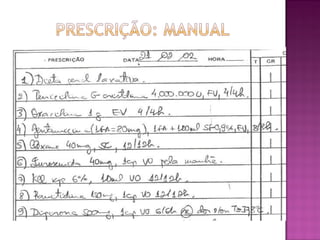 PRESCRIÇÃO: MANUAL
- PRESCRIÇÃO DATA 21 03 02 HORA
T GR
1) Dieta oral laxativa.
2) Penicilina G cristalina 4.000.000 U, EV, 4/4h.
3) Oxacilina 2g EV 4/4h.
4) Gentamicina (1FA=80mg), 1FA + 100ml SF 0,9%, EV, 8/8h.
5) 40mg, SC, 12/12h.
6) Furosemida 40mg, 1cp VO pela manhã.
7) KCl xpe 6%, 10ml VO 12/12h.
8) Ranitidina 150mg, 1cp VO 12/12h.
9) Dipirona 500mg, 1cp VO 6/6h dor e/ou